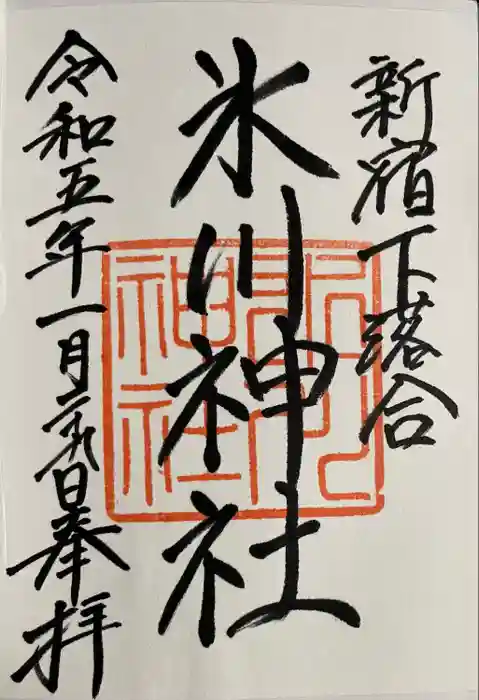 新宿下落合
氷川神社
令和五年一月二九日奉拝
神社